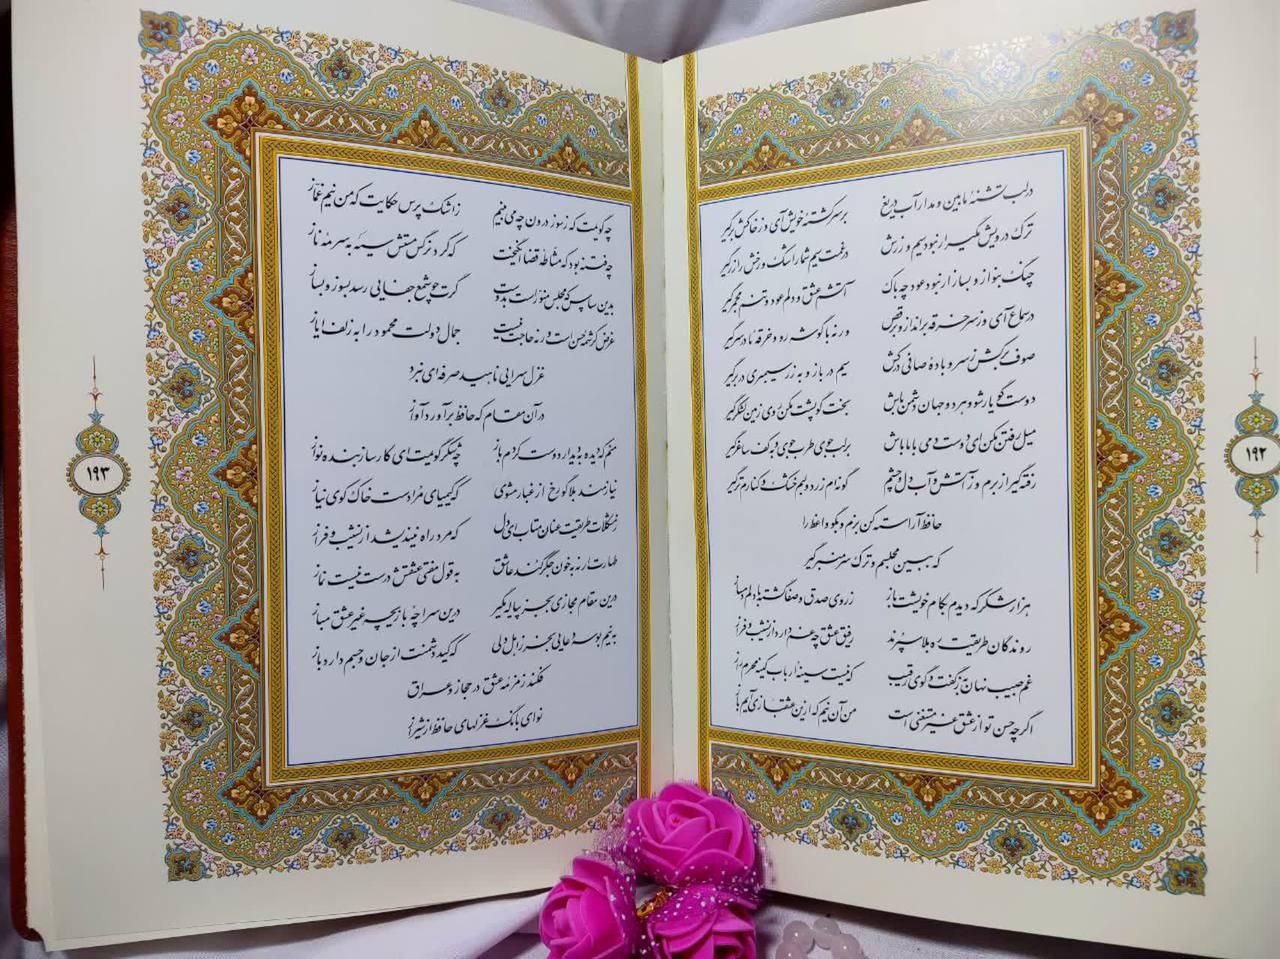 در لب تشنهٔ ما بین و مدار آب دریغ
بر سر کشتهٔ خویش آی و ز خاکش برگیر
ترک درویش مگیر ار نبود سیم و زرش
در غمت سیم شمار اشک و رخش را زر گیر
چنگ بنواز و بساز ار نبود عود چه باک
آتشم عشق و دلم عود و تنم مجمر گیر
در سماع آی و ز سر خرقه برانداز و برقص
ور نه با گوشه رو و خرقهٔ ما در سر گیر
صوف برکش ز سر و بادهٔ صافی درکش
سیم در باز و به زر سیمبری در بر گیر
دوست گو یار شو و هر دو جهان دشمن باش
بخت گو پشت مکن روی زمین لشکر گیر
میل رفتن مکن ای دوست دمی با ما باش
بر لب جوی طرب جوی و به کف ساغر گیر
رفته گیر از برم و ز آتش و آب دل و چشم
گونه‌ام زرد و لبم خشک و کنارم تر گیر
حافظ آراسته کن بزم و بگو واعظ را
که ببین مجلسم و ترک سر منبر گیر
هزار شکر که دیدم به کام خویشت باز
ز روی صدق و صفا گشته با دلم دمساز
روندگان طریقت ره بلا سپرند
رفیق عشق چه غم دارد از نشیب و فراز
غم حبیب نهان به ز گفت و گوی رقیب
که نیست سینهٔ ارباب کینه محرم راز
اگر چه حسن تو از عشق غیر مستغنی است
من آن نیم که ازین عشقبازی آیم باز
۱۹۲
چه گویمت که ز سوز درون چه می‌بینم
ز اشک پرس حکایت که من نیم غماز
چه فتنه بود که مشاطهٔ قضا انگیخت
که کرد نرگس مستش سیه به سرمهٔ ناز
بدین سپاس که مجلس منور است بدوست
گرت چو شمع جفایی رسد بسوز و بساز
غرض کرشمهٔ حسن است ور نه حاجت نیست
جمال دولت محمود را به زلف ایاز
غزل سرایی ناهید صرفه‌ای نبرد
در آن مقام که حافظ برآورد آواز
منم که دیده به دیدار دوست کردم باز
چه شکر گویمت ای کارساز بنده نواز
نیازمند بلا گو رخ از غبار مشوی
که کیمیای مراد است خاک کوی نیاز
ز مشکلات طریقت عنان متاب ای دل
که مرد راه نیندیشد از نشیب و فراز
طهارت ار نه به خون جگر کند عاشق
به قول مفتی عشقش درست نیست نماز
درین مقام مجازی بجز پیاله مگیر
درین سراچهٔ بازیچه غیر عشق مباز
به نیم بوسه دعایی بخر ز اهل دلی
که کید دشمنت از جان و جسم دارد باز
فکند زمزمهٔ عشق در حجاز و عراق
نوای بانگ غزلهای حافظ از شیراز
۱۹۳